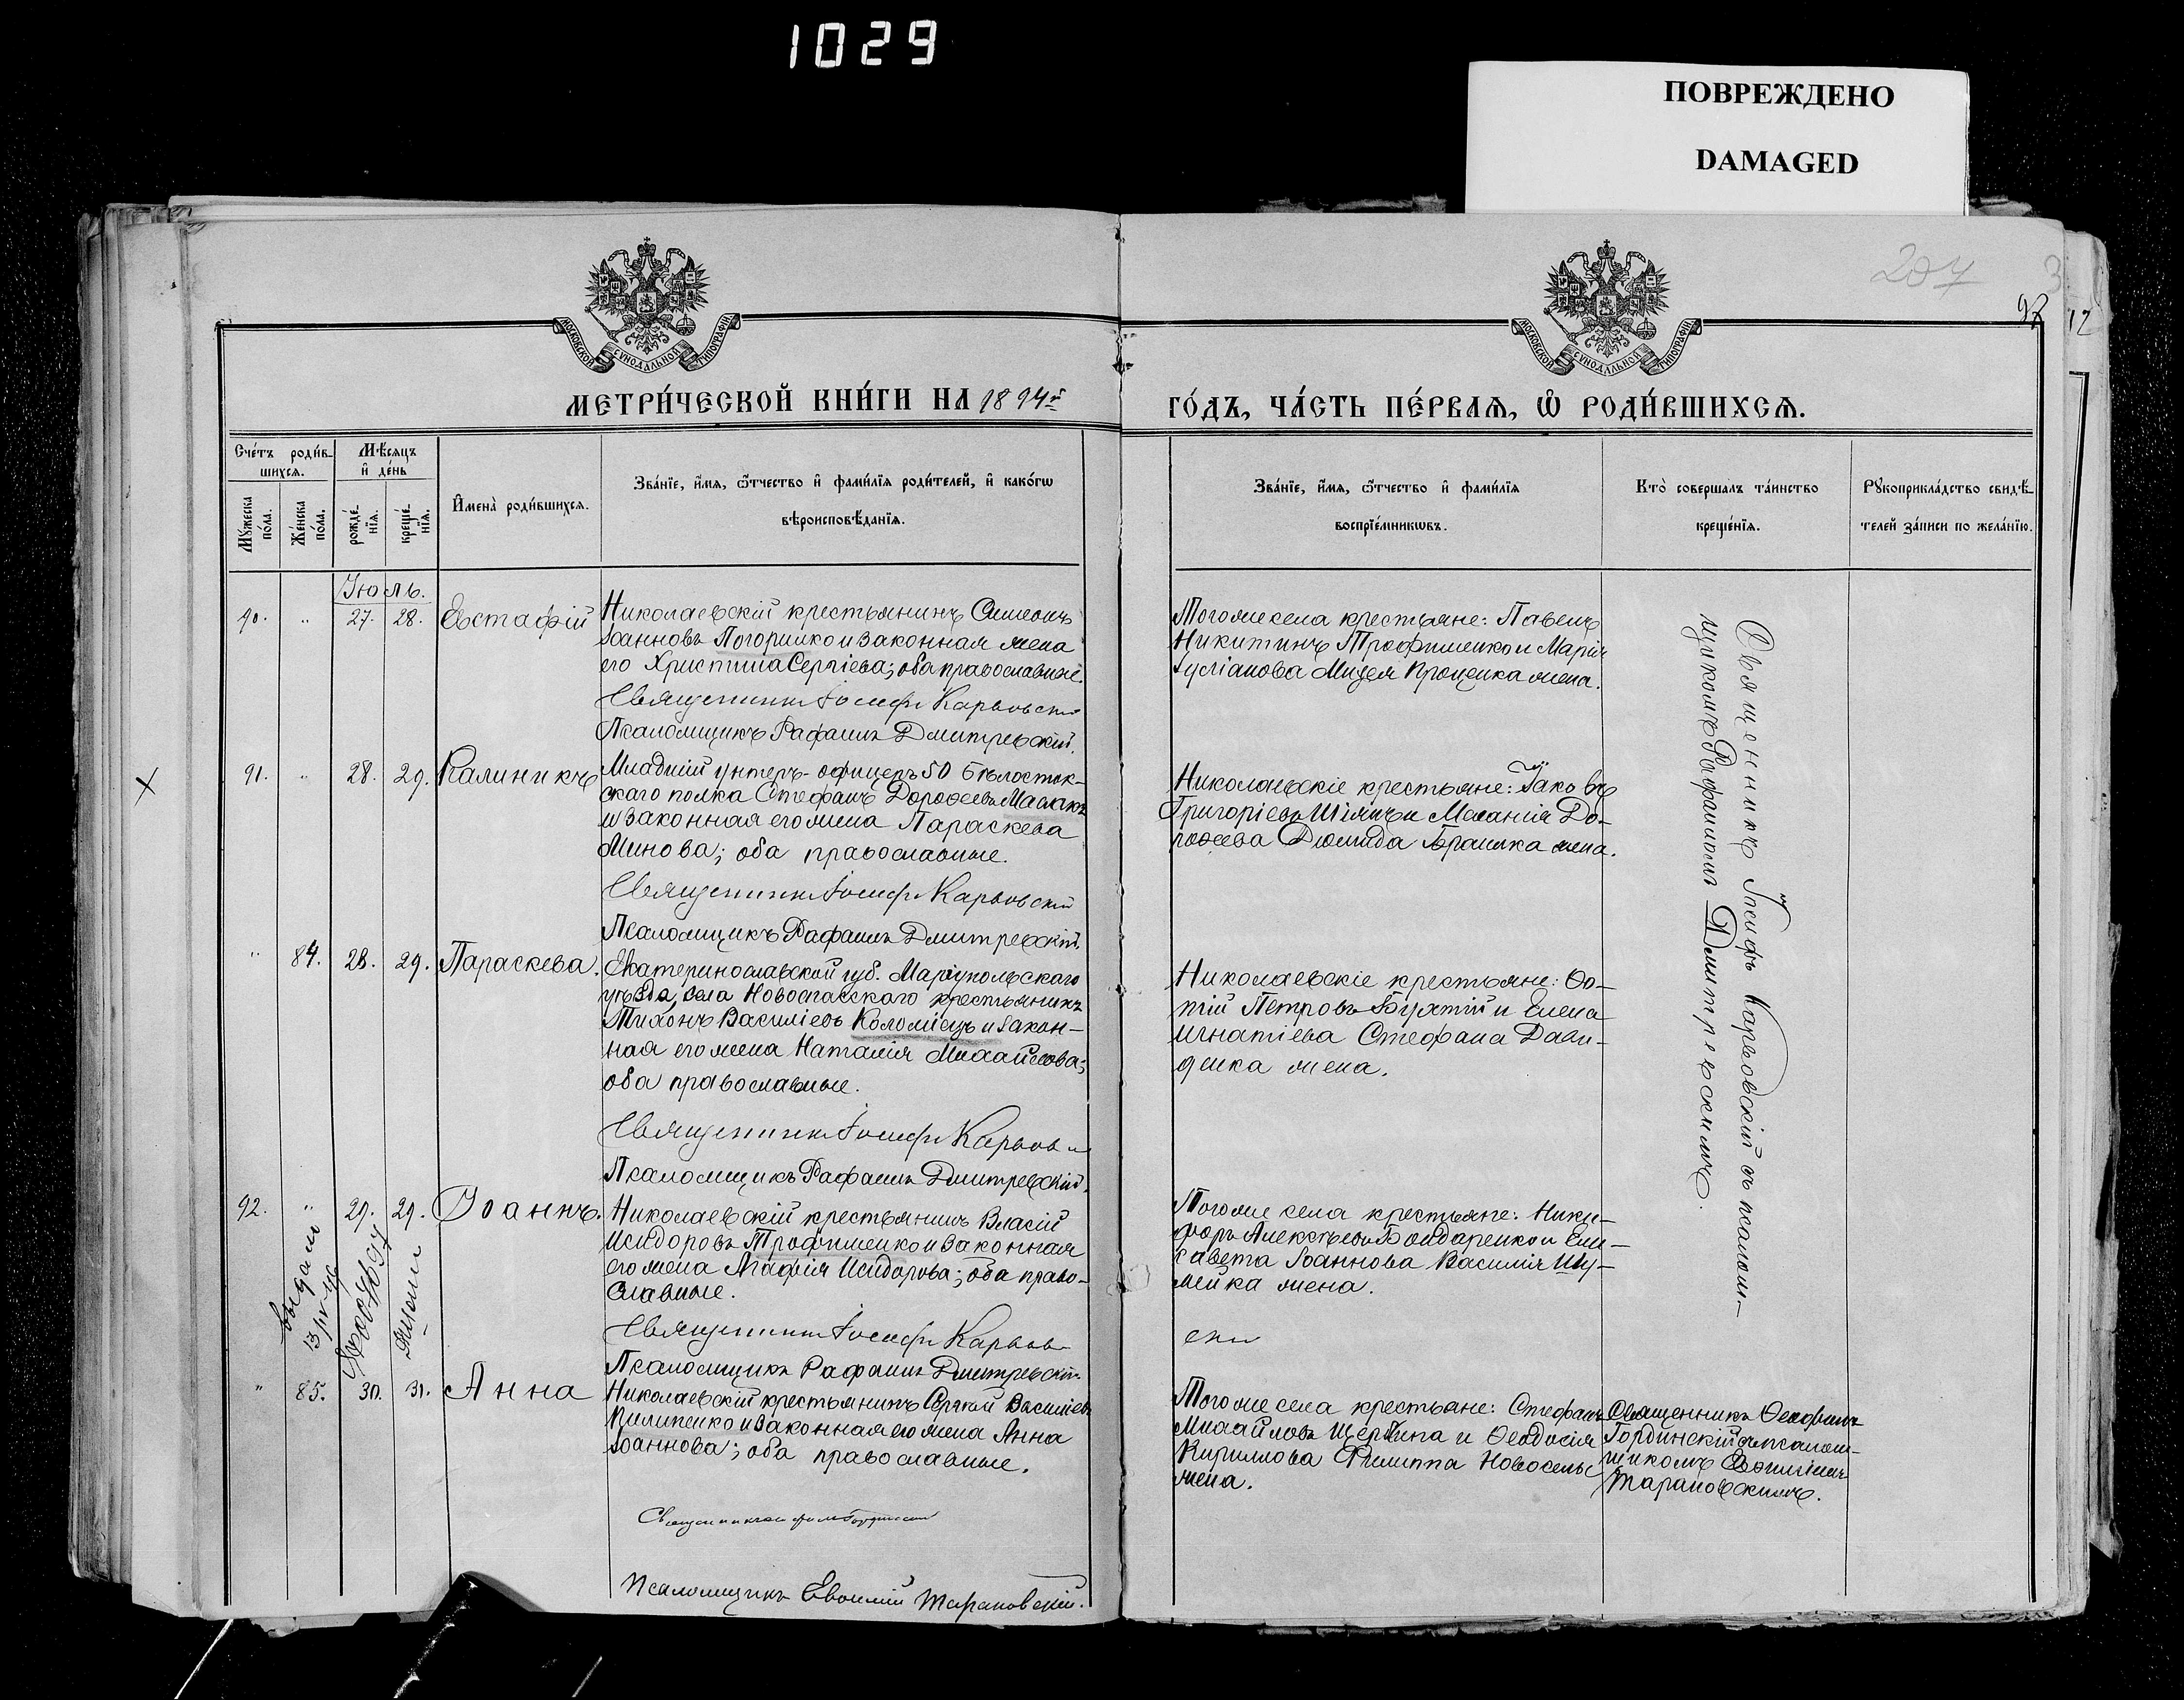 1029
ПОВРЕЖДЕНО
DAMAGED
207
3
97
12
МОСКОВСКОЙ СѴНОДАЛЬНОЙ ТИПОГРАФІИ
МОСКОВСКОЙ СѴНОДАЛЬНОЙ ТИПОГРАФІИ
МЕТРИ́ЧЕСКОЙ КНИ́ГИ НА 1894й
ГО́ДЪ, ЧА́СТЬ ПЕ́РВАѦ, Ѽ РОДИ́ВШИХСѦ.
Сче́тъ роди́в-
шихсѧ.
Мѣ́сѧцъ
и҆ де́нь
Мꙋ́жеска
по́ла.
Же́нска
по́ла.
рожде́-
нїѧ.
креще́-
нїѧ.
И҆мена̀ роди́вшихсѧ.
Зва́нїе, и҆́мѧ, ѻ҆́тчество и҆ фами́лїѧ роди́телей, и҆ како́гѡ
вѣроисповѣ́данїѧ.
Зва́нїе, и҆́мѧ, ѻ҆́тчество и҆ фами́лїѧ
воспрїе́мникѡвъ.
Кто̀ соверша́лъ та́инство
креще́нїѧ.
Рꙋкоприкла́дство свидѣ́-
телей за́писи по жела́нїю.
Іюль.
90. " 27. 28. Евстафій
Николаевскій крестьянинъ Симеонъ
Іоанновъ Погорилко и законная жена
его Христина Сергіева; оба православные.
Священникъ Іосифъ Карповскій
Псаломщикъ Рафаилъ Дмитревскій.
Того же села крестьяне: Павелъ
Никитинъ Трофименко и Марія
Іуліанова Проценка жена.
91. " 28. 29. Калиникъ
Младшій унтеръ-офицеръ 50 Бѣлосток-
скаго полка Стефанъ Дороѳеевъ Маслакъ
и законная его жена Параскева
Минова; оба православные.
Священникъ Іосифъ Карповскій
Псаломщикъ Рафаилъ Дмитревскій.
Николаевскіе крестьяне: Іаковъ
Григоріевъ и Меланія До-
роѳеева жена.
" 84. 28. 29. Параскева.
Екатеринославской губ. Маріупольскаго
уѣзда, села Новоспасскаго крестьянинъ
Тихонъ Василіевъ Коломіецъ и закон-
ная его жена Наталія Михайлова;
оба православные.
Священникъ Іосифъ Карповскій
Псаломщикъ Рафаилъ Дмитревскій.
Николаевскіе крестьяне: Фо-
тій Петровъ и Елена
Игнатіева Стефана Дави-
денка жена.
Священникъ Іосифъ Карповскій съ псалом-
щикомъ Рафаиломъ Дмитревскимъ.
92. " 29. 29. Іоаннъ.
Николаевскій крестьянинъ Власій
Исидоровъ Трофименко и законная
его жена Агафія Исидорова; оба право-
славные.
Священникъ Іосифъ Карповскій
Псаломщикъ Рафаилъ Дмитревскій
Того же села крестьяне: Ники-
форъ Алексѣевъ Бондаренко и Ели-
савета Іоаннова Василія Шу-
мейка жена.
" 85. 30. 31. Анна
Николаевскій крестьянинъ Сергій Василіевъ
Пилипенко и законная его жена Анна
Іоаннова; оба православные.
Псаломщикъ Евѳимій Тарановскій.
Того же села крестьяне: Стефанъ
Михайловъ Щербина и Ѳеодосія
Кириллова Филиппа Новосельс
жена.
Священникъ Ѳеофилъ
Гординскій съ псалом-
щикомъ Евѳиміемъ
Тарановскимъ.